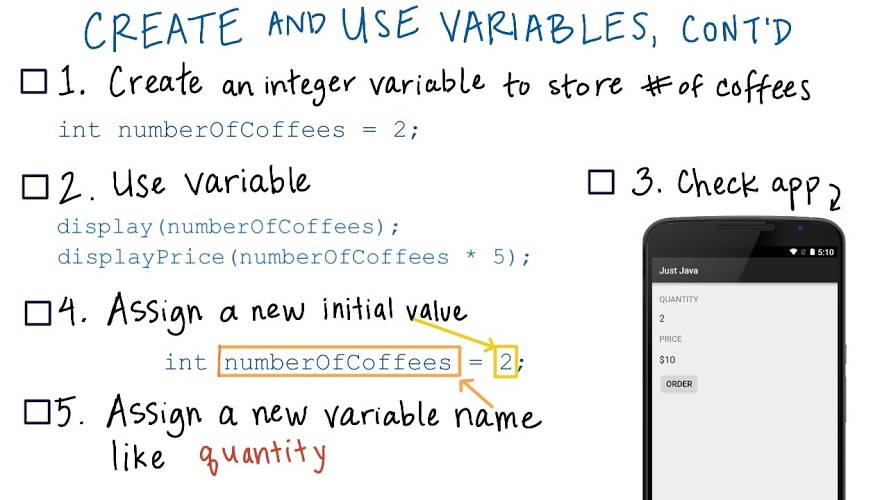 CREATE AND USE VARIABLES, CONT'D
1. Create an integer variable to store # of coffees
int numberOfCoffees = 2;
2. Use variable
display(numberOfCoffees);
displayPrice(numberOfCoffees * 5);
3. Check app
5:10
Just Java
QUANTITY
2
PRICE
$10
ORDER
4. Assign a new initial value
int numberOfCoffees = 2;
5. Assign a new variable name
like quantity